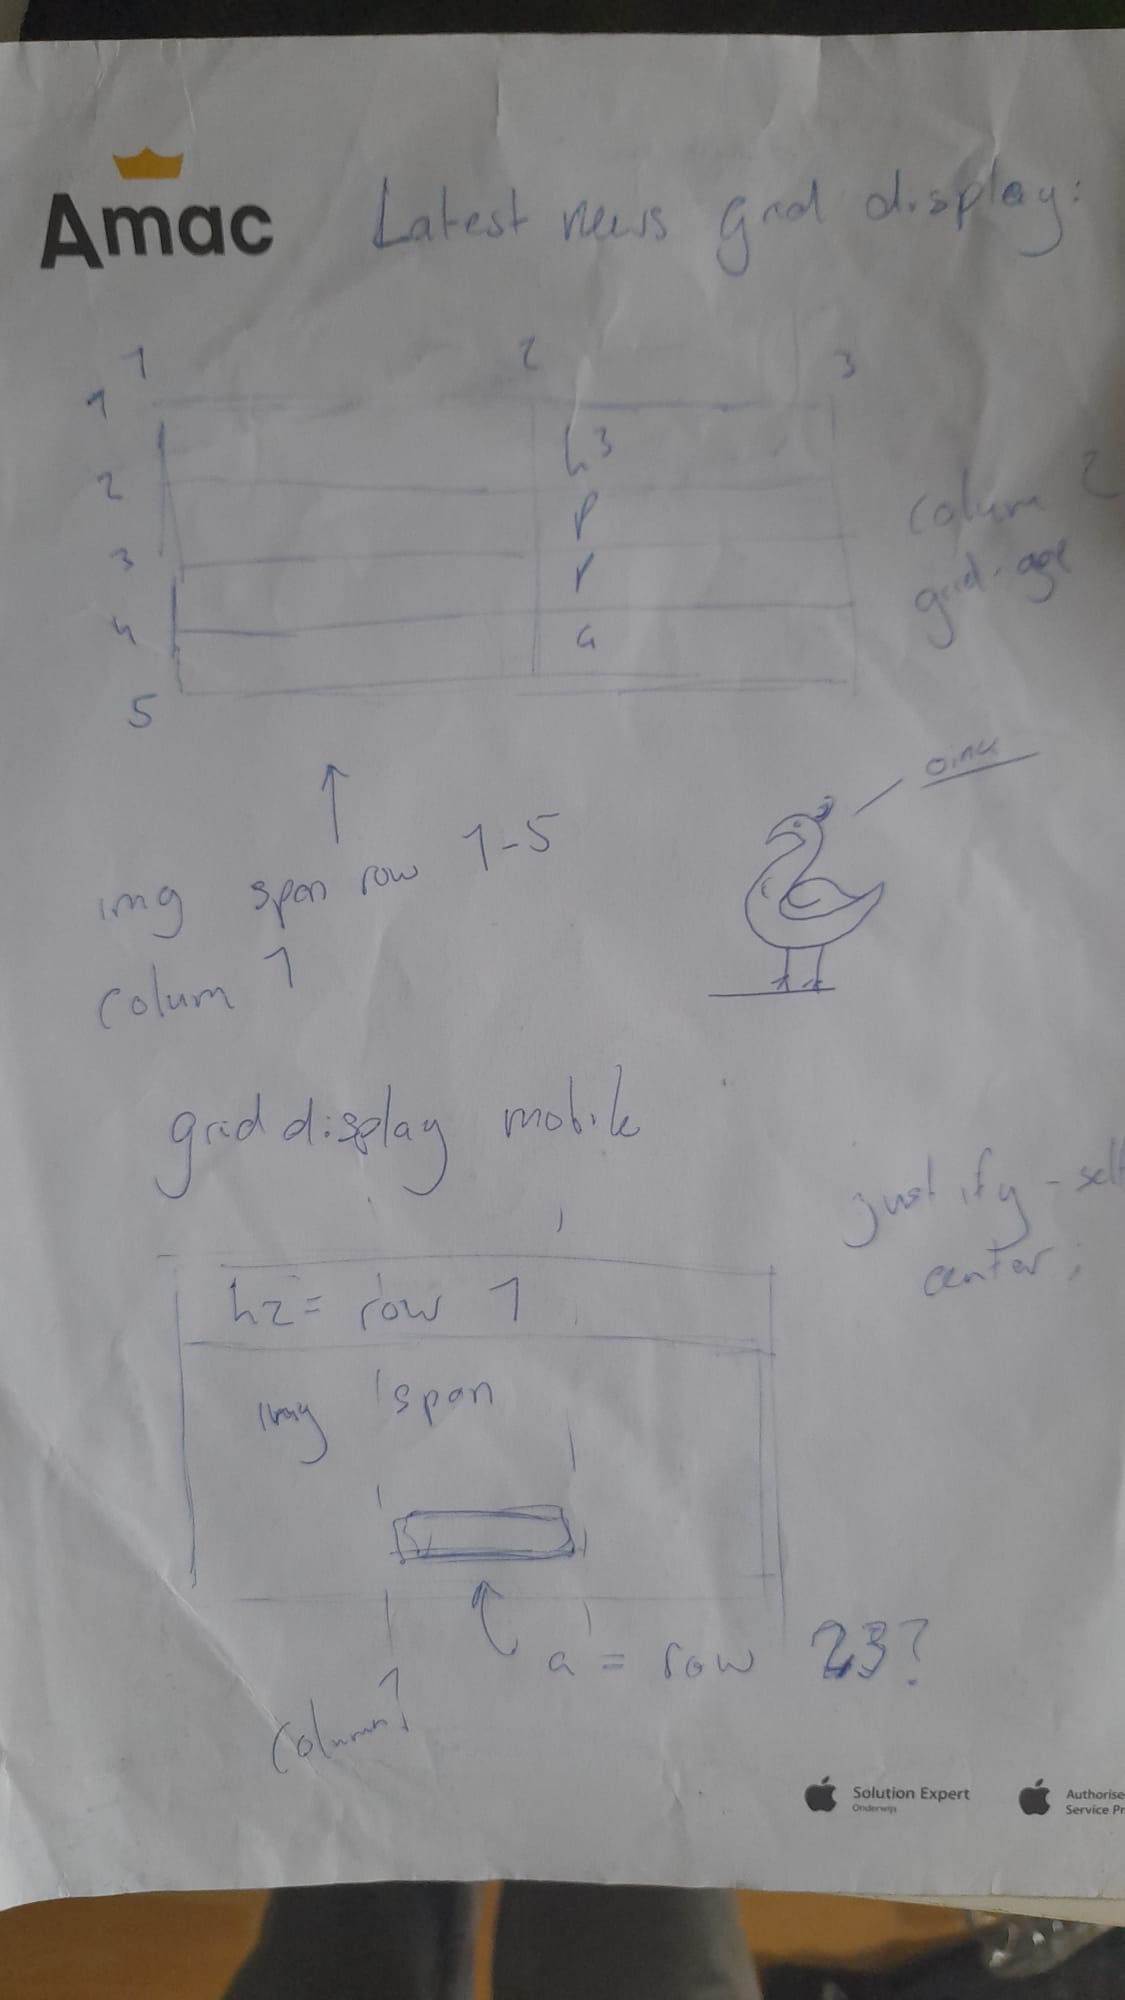 Amac
Latest news grid display:
1 2 3
1
h3
2
p
3
p
4
a
5
colum 2
grid-age
oink
img span row 1-5
colum 1
grid display mobile
justify-self
center;
h2 = row 1
img span
a = row 23?
column 1
Solution Expert
Onderwijs
Authorise
Service Pr